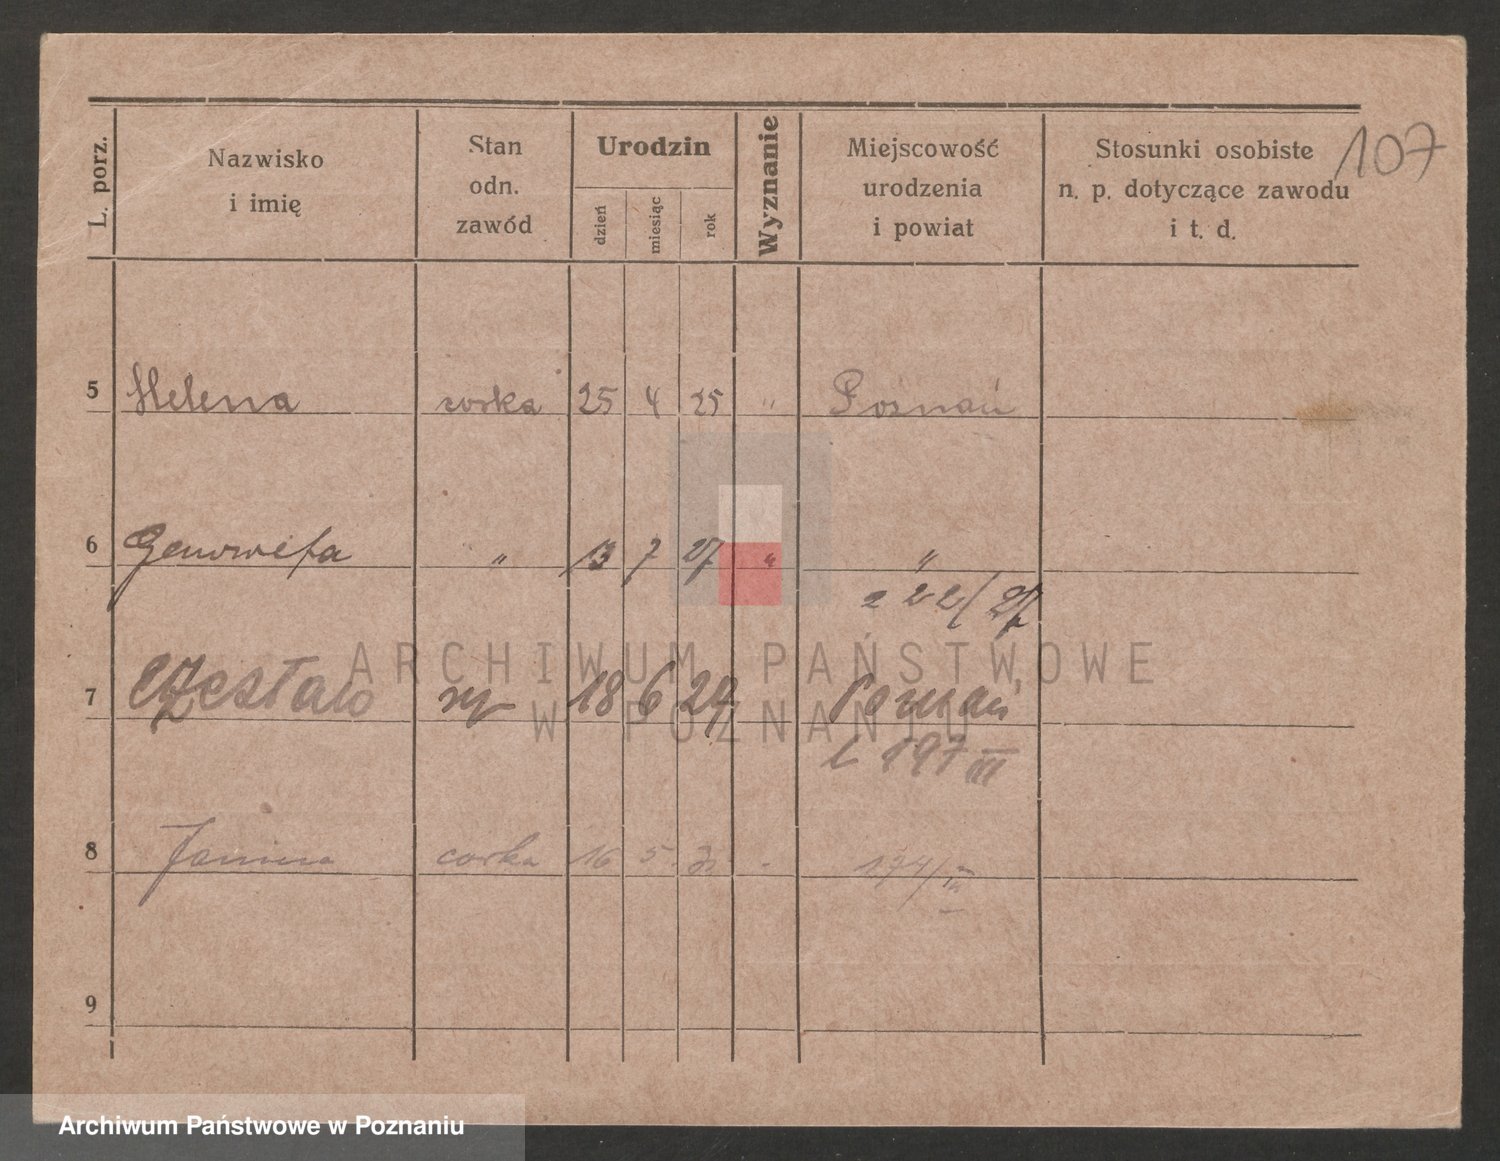 107
L. porz.
Nazwisko
i imię
Stan
odn.
zawód
Urodzin
dzień
miesiąc
rok
Wyznanie
Miejscowość
urodzenia
i powiat
Stosunki osobiste
n. p. dotyczące zawodu
i t. d.
5 Helena corka 25 4 25 " Poznań
6 Genowefa " 13 7 27 " "
222/27
7 Czesław syn 18 6 29 Poznań
197 III
8 Janina corka 16 5
9
ARCHIWUM PAŃSTWOWE
W POZNANIU
Archiwum Państwowe w Poznaniu